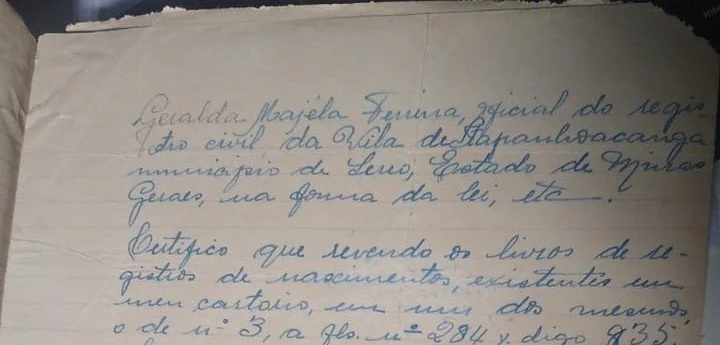 Geralda Majéla Ferreira, oficial do regis
tro civil da Vila de Itapanhoacanga
municipio de Serro, Estado de Minas
Geraes, na forma da lei, etc.
Certifico que revendo os livros de re-
gistros de nascimentos, existentes em
meu cartorio, em um dos mesmos
o de nº 3, a fls. nº 284 v. digo 835